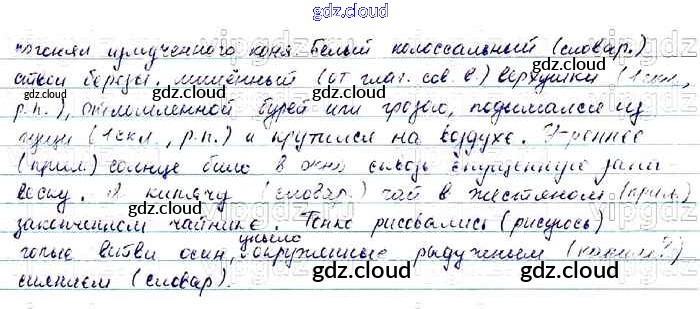 gdz.cloud
погонял измученного коня. Белый колоссальный (словар.)
ствол березы, лишённый (от глаг. сов. в.) верхушки (1 скл.,
р.п.), отломленной бурей или грозою, подымался из
гущи (1 скл., р.п.) и круглился на воздухе. Утреннее
(прил.) солнце било в окна сквозь спущенную зана-
веску. Я кипячу (словар.) чай в жестяном (прил.)
закопченном чайнике. Тонко рисовались (рисуюсь)
голые ветви осин, уныло окруженные радужным (каким?)
сиянием (словар).
gdz.cloud
gdz.cloud
gdz.cloud
gdz.cloud
gdz.cloud
gdz.cloud
gdz.cloud
gdz.cloud
gdz.cloud